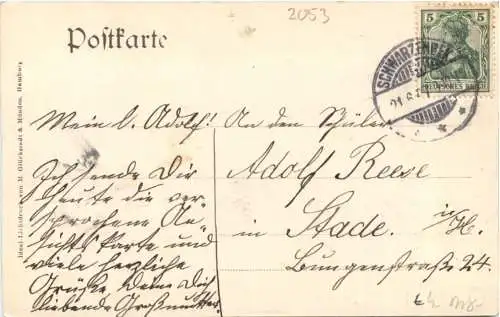 2053
Postkarte
5
DEUTSCHES REICH
SCHWARZENBEK
21.6.
Ideal-Lichtdruck von M. Glückstadt & Münden, Hamburg
Mein l. Adolf!
Ich sende Dir
heute die ver-
sprochene An-
sichtskarte und
viele herzliche
Grüße. Deine Dich
liebende Großmutter.
An den Schüler
Adolf Reese
in Stade. i/H.
Bungenstraße 24.